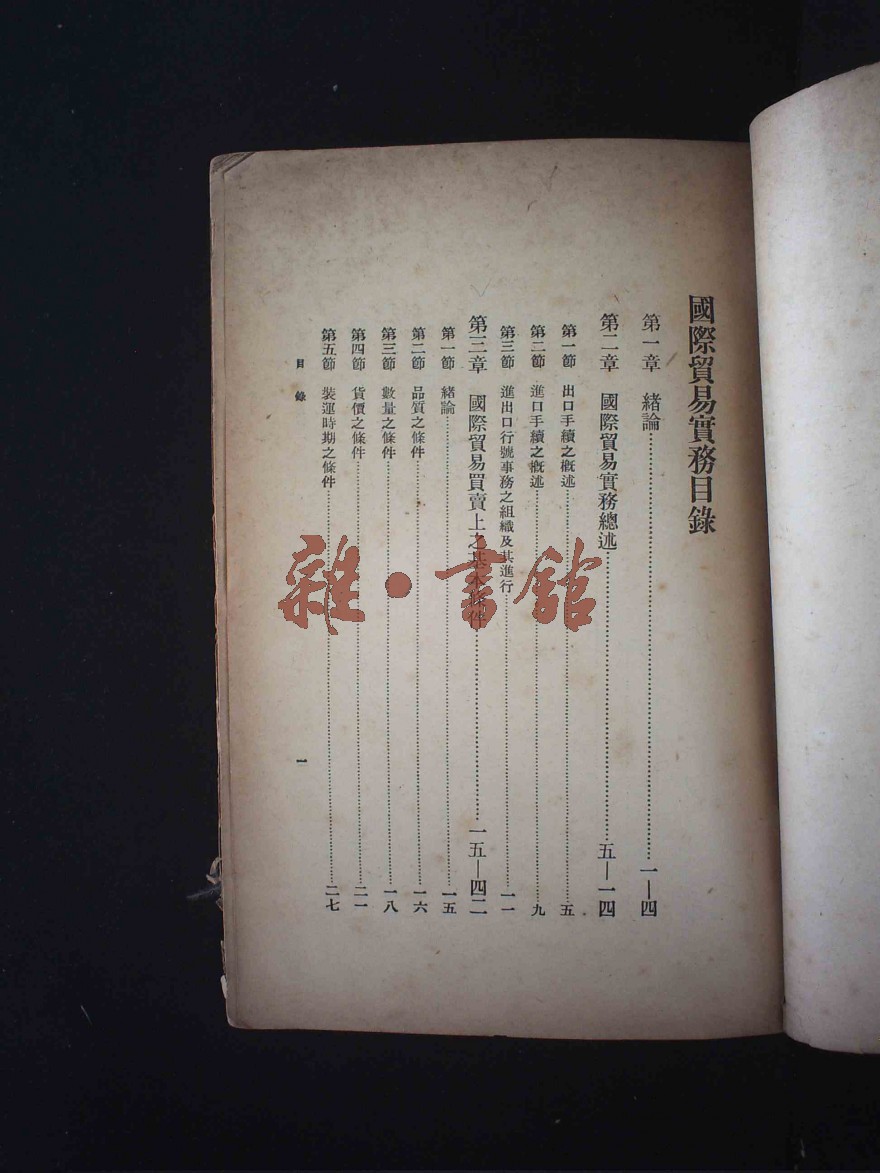 國際貿易實務目錄
第一章 緒論……一—四
第二章 國際貿易實務總述……五—一四
第一節 出口手續之概述……五
第二節 進口手續之概述……九
第三節 進出口行號事務之組織及其進行……一一
第三章 國際貿易買賣上之基本條件……一五—四二
第一節 緒論……一五
第二節 品質之條件……一六
第三節 數量之條件……一八
第四節 貨價之條件……二一
第五節 裝運時期之條件……二七
目錄 一
雜·書館